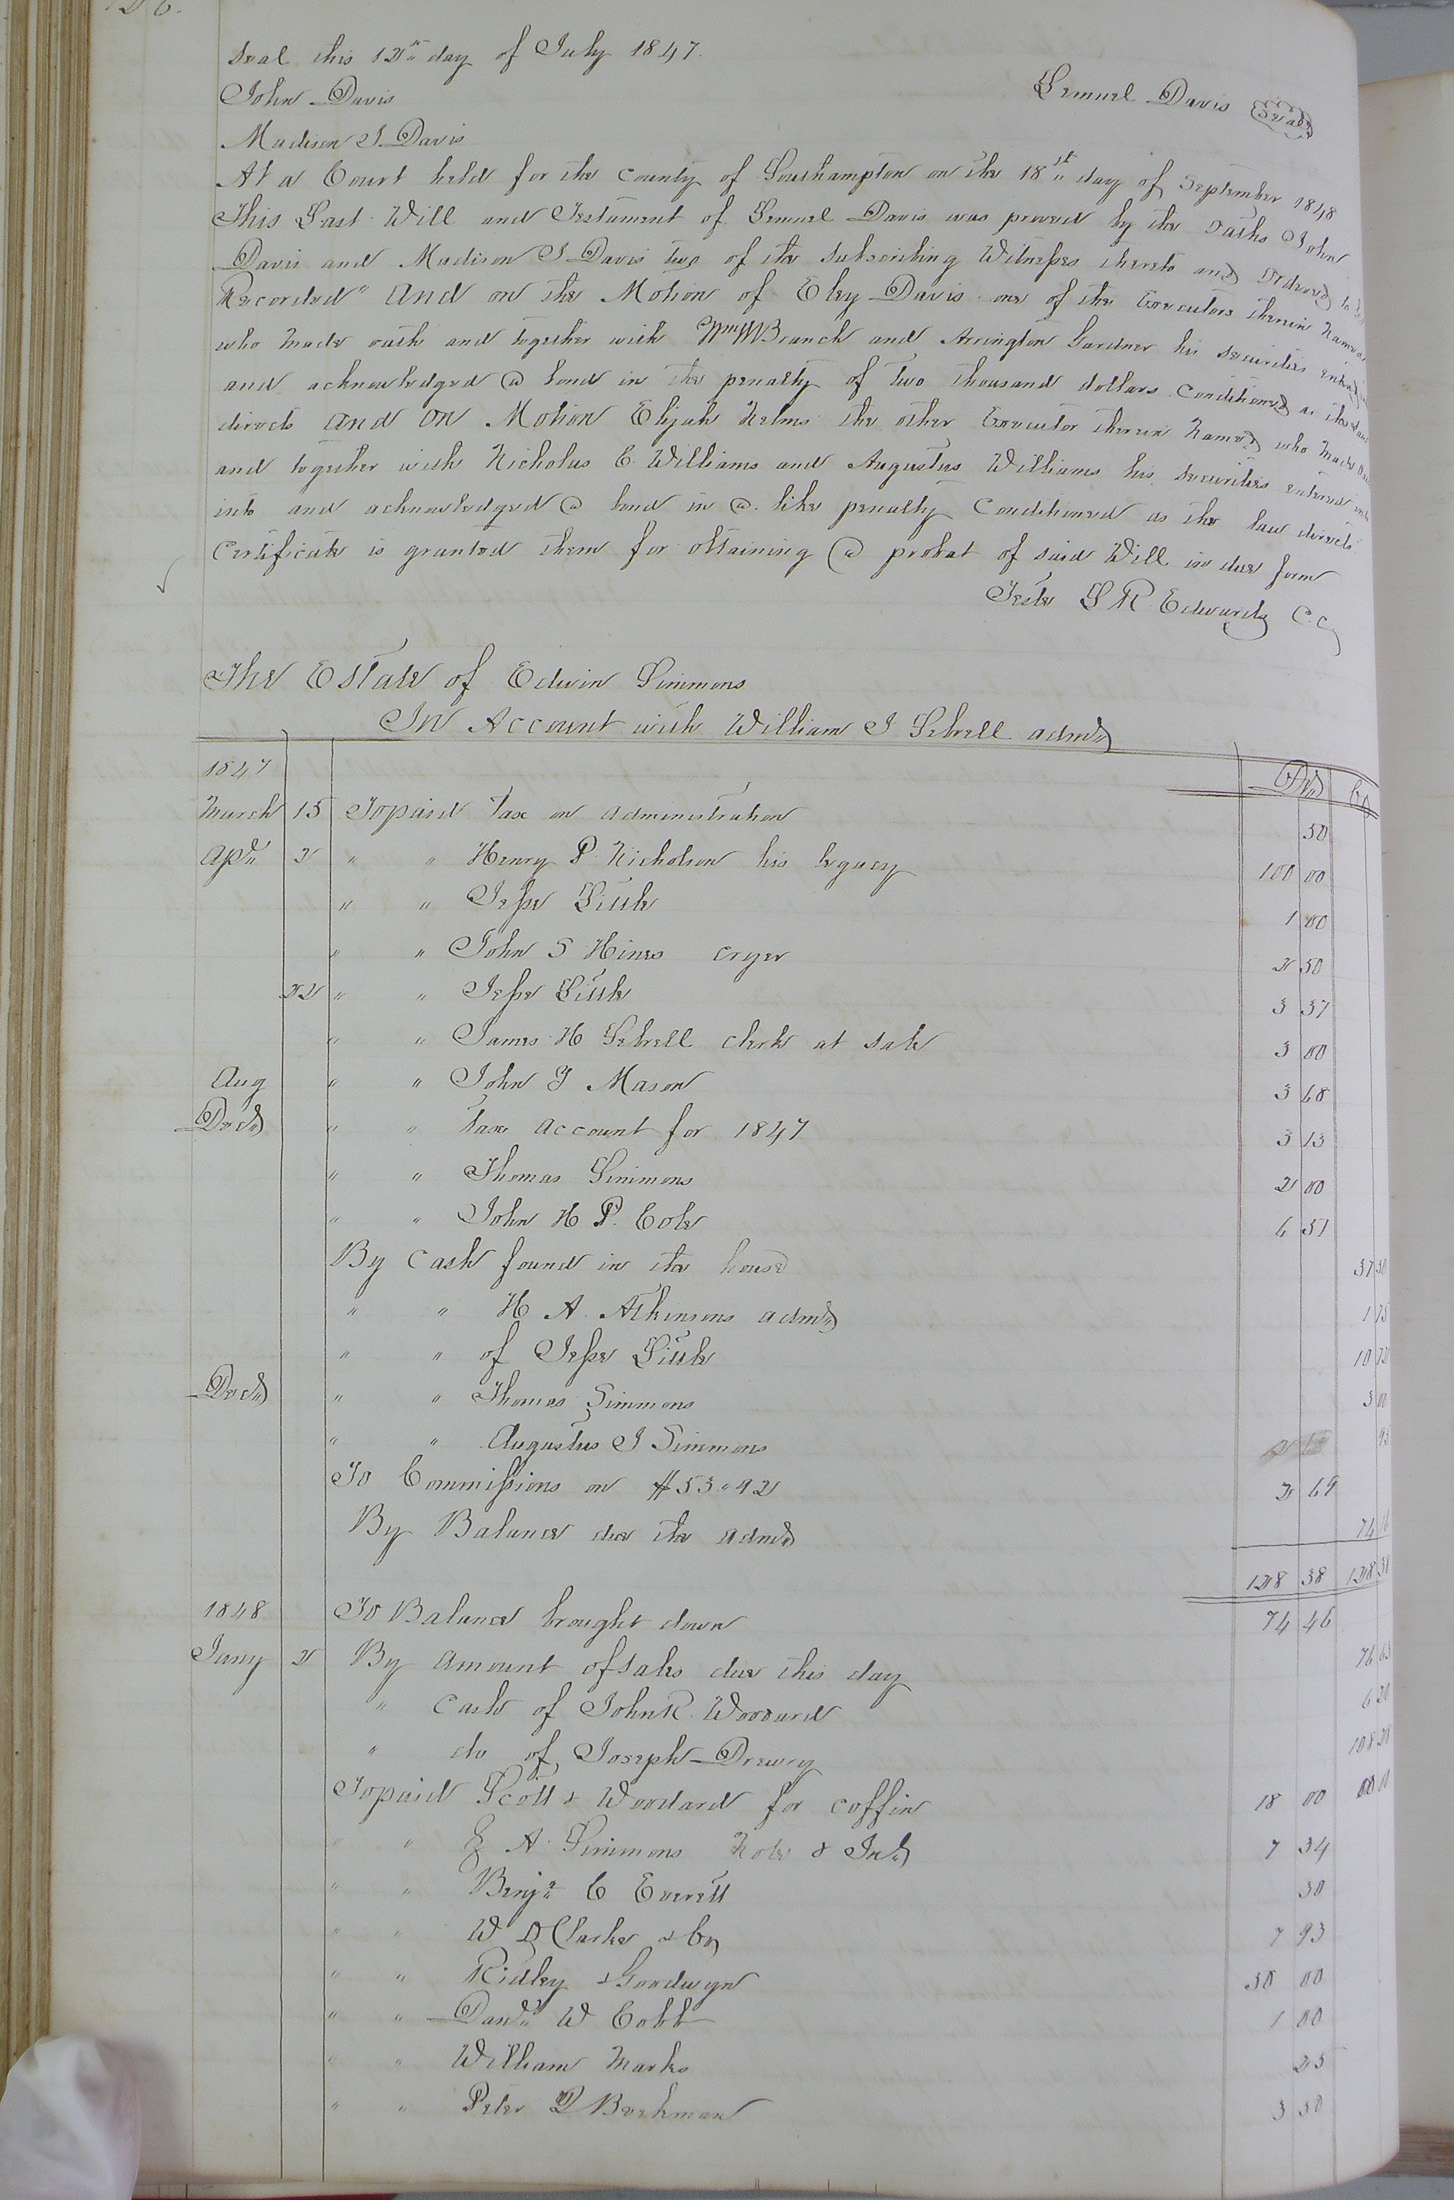 seal this 12th day of July 1847.
John Davis
Lemuel Davis Seal
Madison J Davis
At a Court held for the County of Southampton on the 18th day of September 1848
This Last Will and Testament of Lemuel Davis was proved by the oaths John
Davis and Madison J Davis two of the subscribing Witnesses thereto and Ordered to be
Recorded" And on the Motion of Eley Davis one of the Executors therein Named
who made oath and together with Wm W Branch and Arrington Gardner his securities entered
and acknowledged a bond in the penalty of two thousand dollars conditioned as the law
directs And On Motion Elijah Helms the other Executor therein Named who made oath
and together with Nicholas C. Williams and Augustus Williams his securities entered
into and acknowledged a bond in a like penalty Conditioned as the law directs
Certificate is granted them for obtaining a probat of said Will in due form
Teste L R Edwards C.C
The Estate of Edwin Simmons
In Account with William J Sebrell admr
1847 Dr Cr
March 15 To paid Tax on administration 50
Apl 2 " " Henry P Nicholson his legacy 100 00
" " Jesse Little 1 00
" " John S Hines cryer 2 50
22 " " Jesse Little 3 37
" " James H Sebrell clerk at sale 3 00
Aug " " John Y Mason 3 68
Decr " " Tax account for 1847 3 13
" " Thomas Simmons 2 00
" " John H P. Cole 6 51
By Cash found in the house 37 50
" " H A. Atkinsons admr 1 75
" " of Jesse Little 10 72
Decr " " Thomas Simmons 3 00
" " Augustus J Simmons 95
To Commissions on $53.92 2 69
By Balance due the admr 74 46
128 38 128 38
1848 To Balance brought down 74 46
Jany 2 By amount of sales due this day 76 63
" Cash of John R. Woodard 6 20
" do of Joseph Drewry 108 28
To paid Scott & Woodard for coffin 18 00
" " A. Simmons Note & Int 7 34
" " Benja C Everett 50
" " W D Clarke & Co 7 93
" " Ridley & Goodwyn 30 00
" " Danl W Cobb 1 00
" " William Marks 25
" " Peter D Beekman 3 50